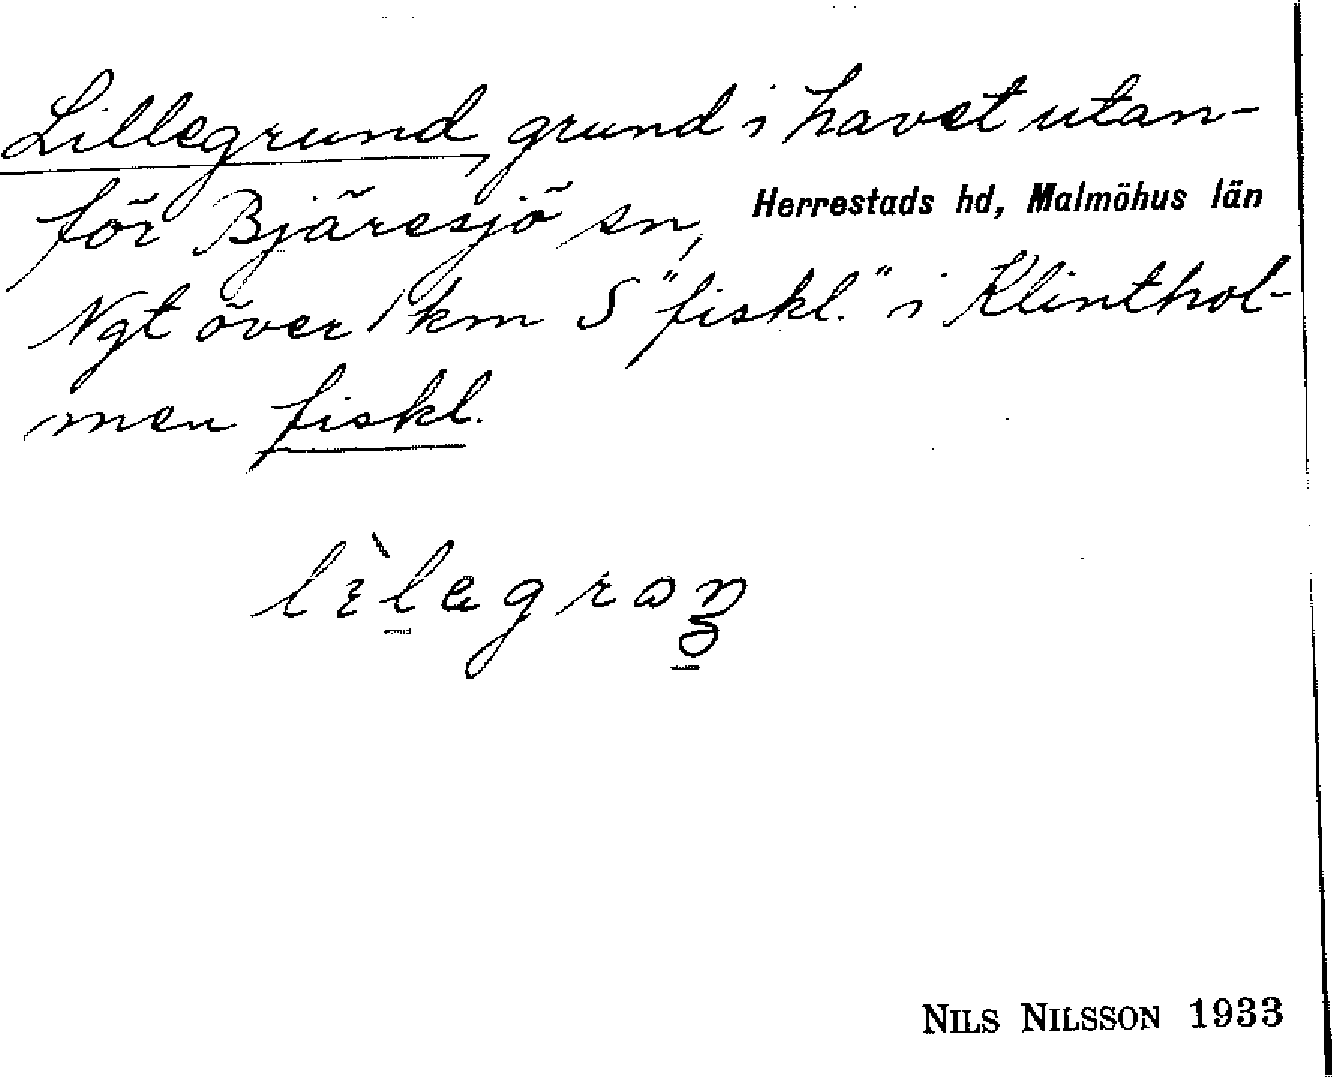 Lillegrund, grund i havet utan-
för Bjäresjö sn, Herrestads hd, Malmöhus län
Ngt över 1 km S "fiskl." i Klinthol-
men fiskl.
NILS NILSSON 1933